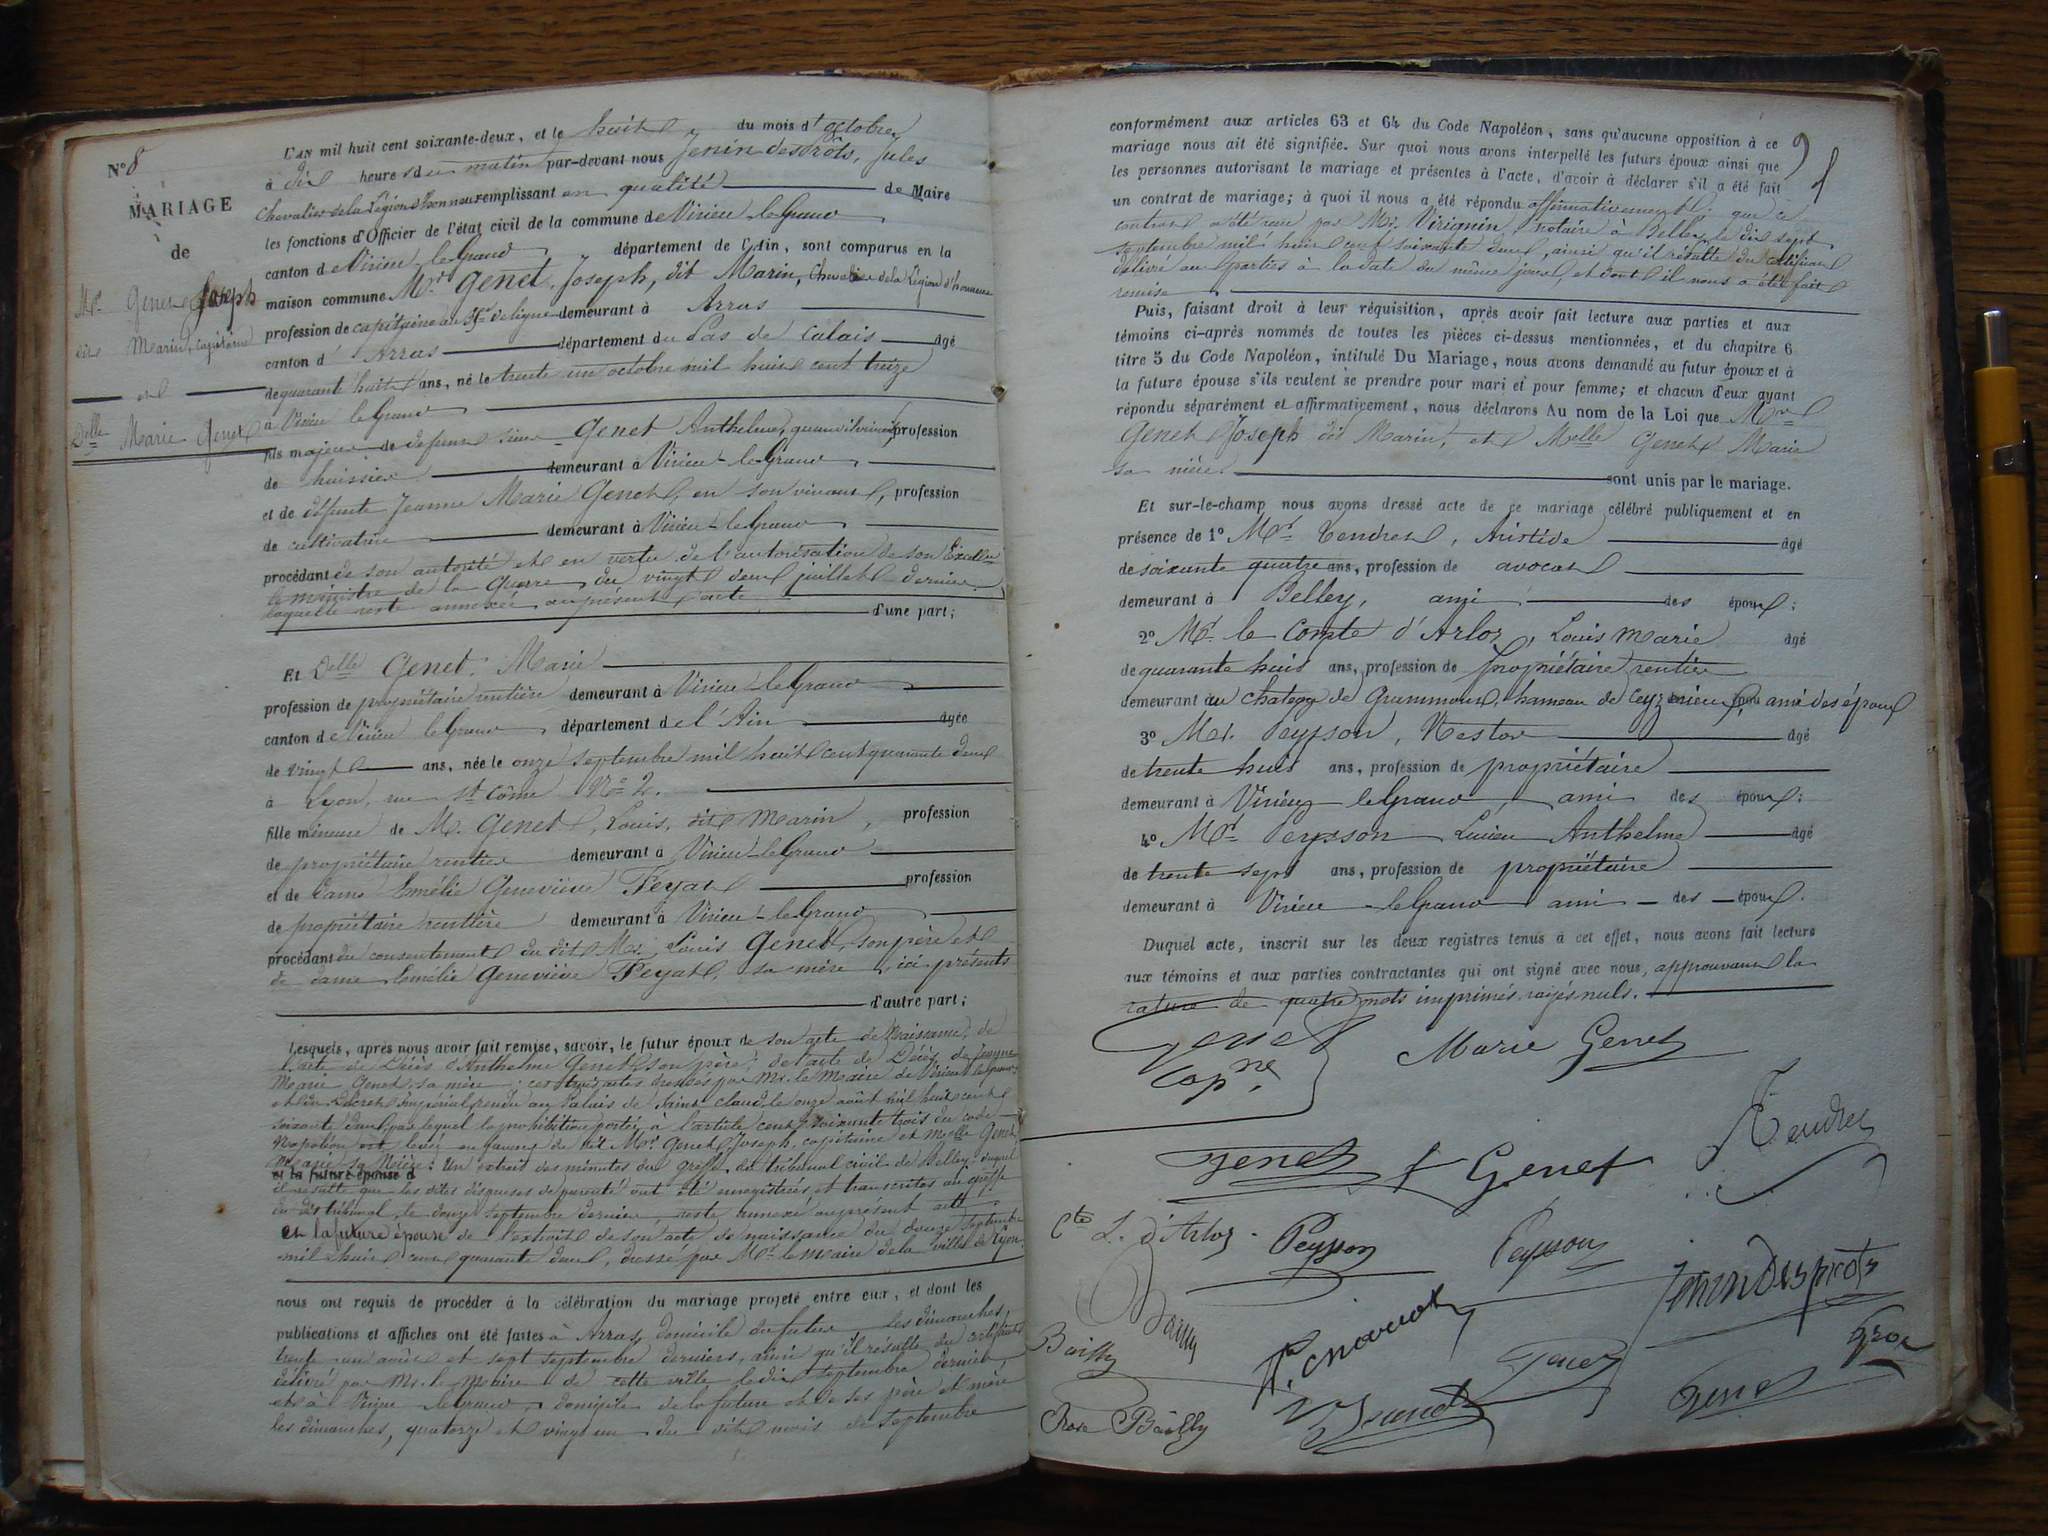 N° 8
MARIAGE
de
Mr. Genet Joseph
dit Marin, capitaine
et
Delle Marie Genet
L'AN mil huit cent soixante-deux, et le huit du mois d'octobre
à dix heures du matin par-devant nous Jenin desprots, Jules
Chevalier de la Légion d'honneur remplissant en qualité de Maire
les fonctions d'Officier de l'état civil de la commune de Virieu le Grand
canton de Virieu le Grand département de l'Ain, sont comparus en la
maison commune Mr. Genet, Joseph, dit Marin, Chevalier de la Légion d'honneur
profession de capitaine au de ligne demeurant à Arras
canton d'Arras département du Pas de Calais âgé
de quarante huit ans, né le trente un octobre mil huit cent treize
à Virieu le Grand
fils majeur de defunt sieur Genet Anthelme, quand il vivait profession
de huissier demeurant à Virieu-le-Grand
et de défunte Jeanne Marie Genet, en son vivant, profession
de cultivatrice demeurant à Virieu-le-Grand
procédant de son autorité et en vertu de l'autorisation de son Excellce
le ministre de la Guerre du vingt deux juillet dernier
laquelle reste annexée au présent acte d'une part;
Et Delle Genet, Marie
profession de propriétaire rentière demeurant à Virieu-le-Grand
canton de Virieu le Grand département de l'Ain âgée
de vingt ans, née le onze septembre mil huit cent quarante deux
à Lyon, rue St Côme N° 2.
fille mineure de M. Genet, Louis, dit Marin, profession
de propriétaire rentier demeurant à Virieu-le-Grand
et de Dame Emélie Geneviève Peyat profession
de propriétaire rentière demeurant à Virieu-le-Grand
procédant du consentement du dit Mr. Louis Genet, son père et
de dame Emélie Geneviève Peyat, sa mère, ici présents
d'autre part;
Lesquels, après nous avoir fait remise, savoir, le futur époux de son acte de Naissance, de
l'acte de Décès d'Anthelme Genet son père; de l'acte de Décès de Jeanne
Marie Genet, sa mère; ces trois actes dressés par Mr. le Maire de Virieu le Grand;
et du Décret Impérial rendu au Palais de Saint Cloud, le onze août mil huit cent
soixante deux, par lequel la prohibition portée à l'article cent soixante trois du code
Napoléon est levée en faveur du dit Mr. Genet, Joseph, capitaine et Melle Genet,
Marie sa Nièce: Un extrait des minutes du greffe du tribunal civil de Belley duquel
et la future épouse d
il résulte que les dites dispenses de parenté ont été enregistrées et transcrites au greffe
du dit tribunal, le douze septembre dernier reste annexé au présent acte
et la future épouse de l'extrait de son acte de naissance du douze septembre
mil huit cent quarante deux, dressé par Mr. le maire de la ville de Lyon
nous ont requis de procéder à la célébration du mariage projeté entre eux, et dont les
publications et affiches ont été faites à Arras, domicile du futur les dimanches
trente un août et sept septembre derniers, ainsi qu'il résulte du certificat
délivré par Mr. le Maire de cette ville le dix septembre dernier
et à Virieu le Grand, domicile de la future et de ses père et mère
les dimanches, quatorze et vingt un du dit mois de septembre
9
conformément aux articles 63 et 64 du Code Napoléon, sans qu'aucune opposition à ce
mariage nous ait été signifiée. Sur quoi nous avons interpellé les futurs époux ainsi que
les personnes autorisant le mariage et présentes à l'acte, d'avoir à déclarer s'il a été fait
un contrat de mariage; à quoi il nous a été répondu affirmativement; que ce
contrat a été reçu par Me. Virignin, notaire à Belley le dix sept
septembre mil huit cent soixante deux, ainsi qu'il résulte du certificat
délivré aux parties à la date du même jour, et dont il nous a été fait
remise.
Puis, faisant droit à leur réquisition, après avoir fait lecture aux parties et aux
témoins ci-après nommés de toutes les pièces ci-dessus mentionnées, et du chapitre 6
titre 5 du Code Napoléon, intitulé Du Mariage, nous avons demandé au futur époux et à
la future épouse s'ils veulent se prendre pour mari et pour femme; et chacun d'eux ayant
répondu séparément et affirmativement, nous déclarons Au nom de la Loi que Mr
Genet Joseph dit Marin, et Melle Genet Marie
sa nièce sont unis par le mariage.
Et sur-le-champ nous avons dressé acte de ce mariage célébré publiquement et en
présence de 1° Mr. Tendret, Aristide âgé
de soixante quatre ans, profession de avocat
demeurant à Belley, ami des époux;
2° Mr. le Comte d'Arloz, Louis Marie âgé
de quarante huit ans, profession de propriétaire rentier
demeurant au chateau de Grammont, hameau de Ceyzerieu, ami des époux
3° Mr. Peysson, Nestor âgé
de trente huit ans, profession de propriétaire
demeurant à Virieu le Grand, ami des époux;
4° Mr. Peysson Lucien Anthelme âgé
de trente sept ans, profession de propriétaire
demeurant à Virieu-le-Grand ami des époux.
Duquel acte, inscrit sur les deux registres tenus à cet effet, nous avons fait lecture
aux témoins et aux parties contractantes qui ont signé avec nous, approuvant la
rature de quatre mots imprimés rayés nuls.
Genet
Capne
Marie Genet
Genet
Genet
Tendret
Cte L. d'Arloz
Peysson
Peysson
Jenin Desprots
Bailly
Bailly
Genet
Genet
Gros
Rose Bailly